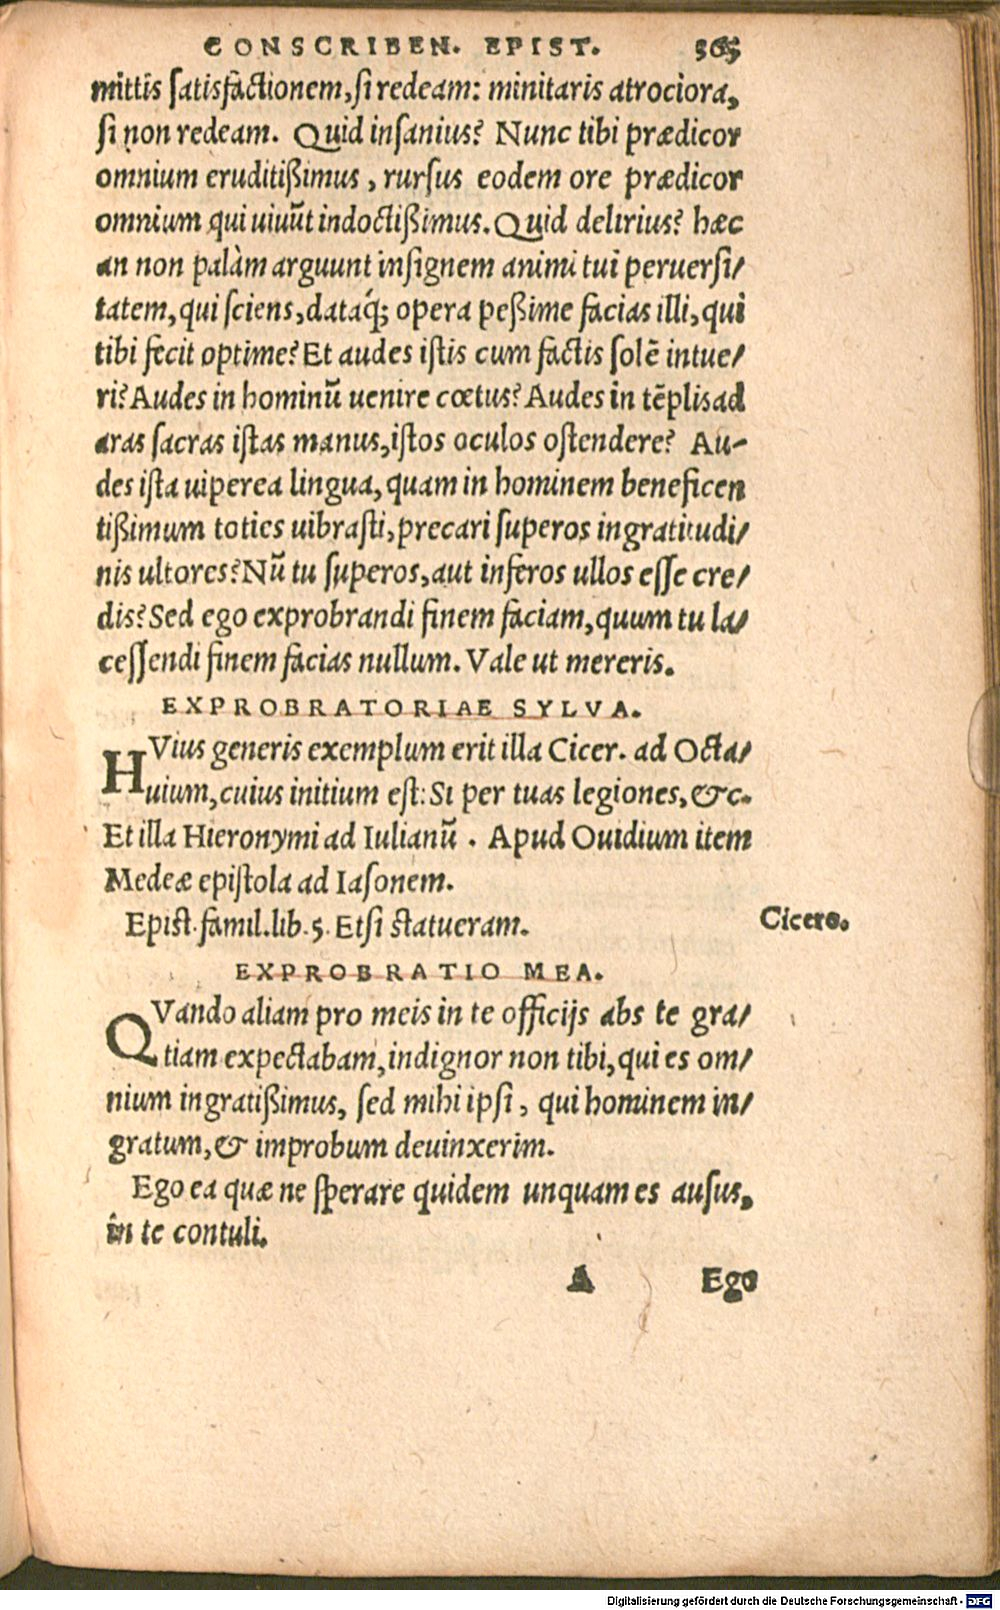 CONSCRIBEN. EPIST. 365
mittis satisfactionem, si redeam: minitaris atrociora,
si non redeam. Quid insanius? Nunc tibi prædicor
omnium eruditißimus, rursus eodem ore prædicor
omnium qui uiuūt indoctißimus. Quid delirius? hæc
an non palàm arguunt insignem animi tui peruersi/
tatem, qui sciens, dataq́; opera peßime facias illi, qui
tibi fecit optime? Et audes istis cum factis solē intue/
ri? Audes in hominū uenire cœtus? Audes in tēplis ad
aras sacras istas manus, istos oculos ostendere? Au-
des ista uiperea lingua, quam in hominem beneficen
tißimum toties uibrasti, precari superos ingratitudi/
nis ultores? Nū tu superos, aut inferos ullos esse cre/
dis? Sed ego exprobrandi finem faciam, quum tu la/
cessendi finem facias nullum. Vale ut mereris.
EXPROBRATORIAE SYLVA.
HVius generis exemplum erit illa Cicer. ad Octa/
uium, cuius initium est: Si per tuas legiones, &c.
Et illa Hieronymi ad Iulianū. Apud Ouidium item
Medeæ epistola ad Iasonem.
Epist. famil. lib. 5. Etsi statueram.
Cicero.
EXPROBRATIO MEA.
QVando aliam pro meis in te officijs abs te gra/
tiam expectabam, indignor non tibi, qui es om/
nium ingratißimus, sed mihi ipsi, qui hominem in/
gratum, & improbum deuinxerim.
Ego ea quæ ne sperare quidem unquam es ausus,
in te contuli.
A Ego
Digitalisierung gefördert durch die Deutsche Forschungsgemeinschaft - DFG